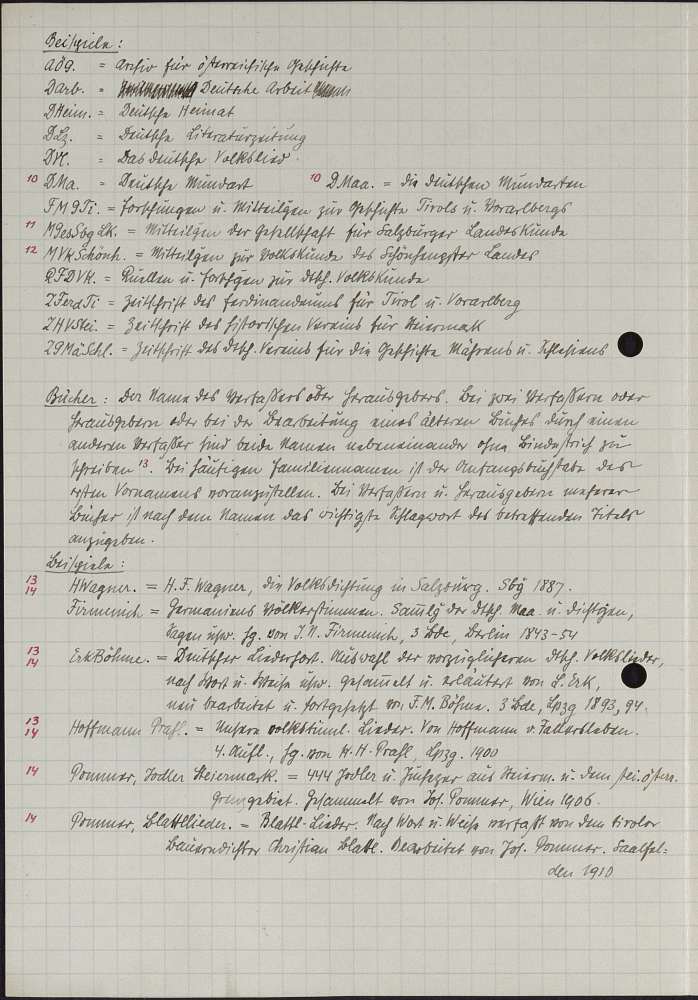 Beispiele:
AÖG. = Archiv für österreichische Geschichte
DArb. = Deutsche Arbeit
DHeim. = Deutsche Heimat
DLz. = Deutsche Literaturzeitung
DVl. = Das deutsche Volkslied
10 DMa. = Deutsche Mundart 10 DMaa. = Die deutschen Mundarten
FMGTi. = Forschungen u. Mitteilgen zur Geschichte Tirols u. Vorarlbergs
11 MGesSbgLk. = Mitteilgen der Gesellschaft für Salzburger Landeskunde
12 MVkSchönh. = Mitteilgen zur Volkskunde des Schönhengster Landes
QFDVk. = Quellen u. Forschgen zur dtsch. Volkskunde
ZFerdTi = Zeitschrift des Ferdinandeums für Tirol u. Vorarlberg
ZHVStei. = Zeitschrift des historischen Vereins für Steiermak
ZGMäSchl. = Zeitschrift des dtsch. Vereins für die Geschichte Mährens u. Schlesiens
Bücher: Der Name des Verfassers oder Herausgebers. Bei zwei Verfassern oder
Herausgebern oder bei der Bearbeitung eines älteren Buches durch einen
anderen Verfasser sind beide Namen nebeneinander ohne Bindestrich zu
schreiben 13. Bei häufigen Familiennamen ist der Anfangsbuchstabe des
ersten Vornamens voranzustellen. Bei Verfassern u. Herausgebern mehrerer
Bücher ist nach dem Namen das wichtigste Schlagwort des betreffenden Titels
anzugeben.
Beispiele:
13 14 HWagner. = H. F. Wagner, Die Volksdichtung in Salzburg. Sbg 1887.
Firmenich = Germaniens Völkerstimmen. Samlg der dtsch. Maa. in Dichtgen,
Sagen usw. Hg. von J. M. Firmenich, 3 Bde, Berlin 1843-54
13 14 ErkBöhme. = Deutscher Liederhort. Auswahl der vorzüglicheren dtsch. Volkslieder,
nach Wort u. Weise usw. gesammelt u. erläutert von L. Erk,
neu bearbeitet u. fortgesetzt von F. M. Böhme. 3 Bde, Lpzg 1893, 94.
13 14 Hoffmann Prahl. = Unsere volkstüml. Lieder. Von Hoffmann v. Fallersleben.
4. Aufl., hg. von K. H. Prahl, Lpzg. 1900
14 Pommer, Jodler Steiermark. = 444 Jodler u. Juchezer aus Steierm. u. dem stei. österr.
Grenzgebiet. Gesammelt von Jos. Pommer, Wien 1906.
14 Pommer, Blattllieder. = Blattl-Lieder. Nach Wort u. Weise verfaßt von dem tiroler
Bauerndichter Christian Blattl. Bearbeitet von Jos. Pommer. Saalfel=
den 1910